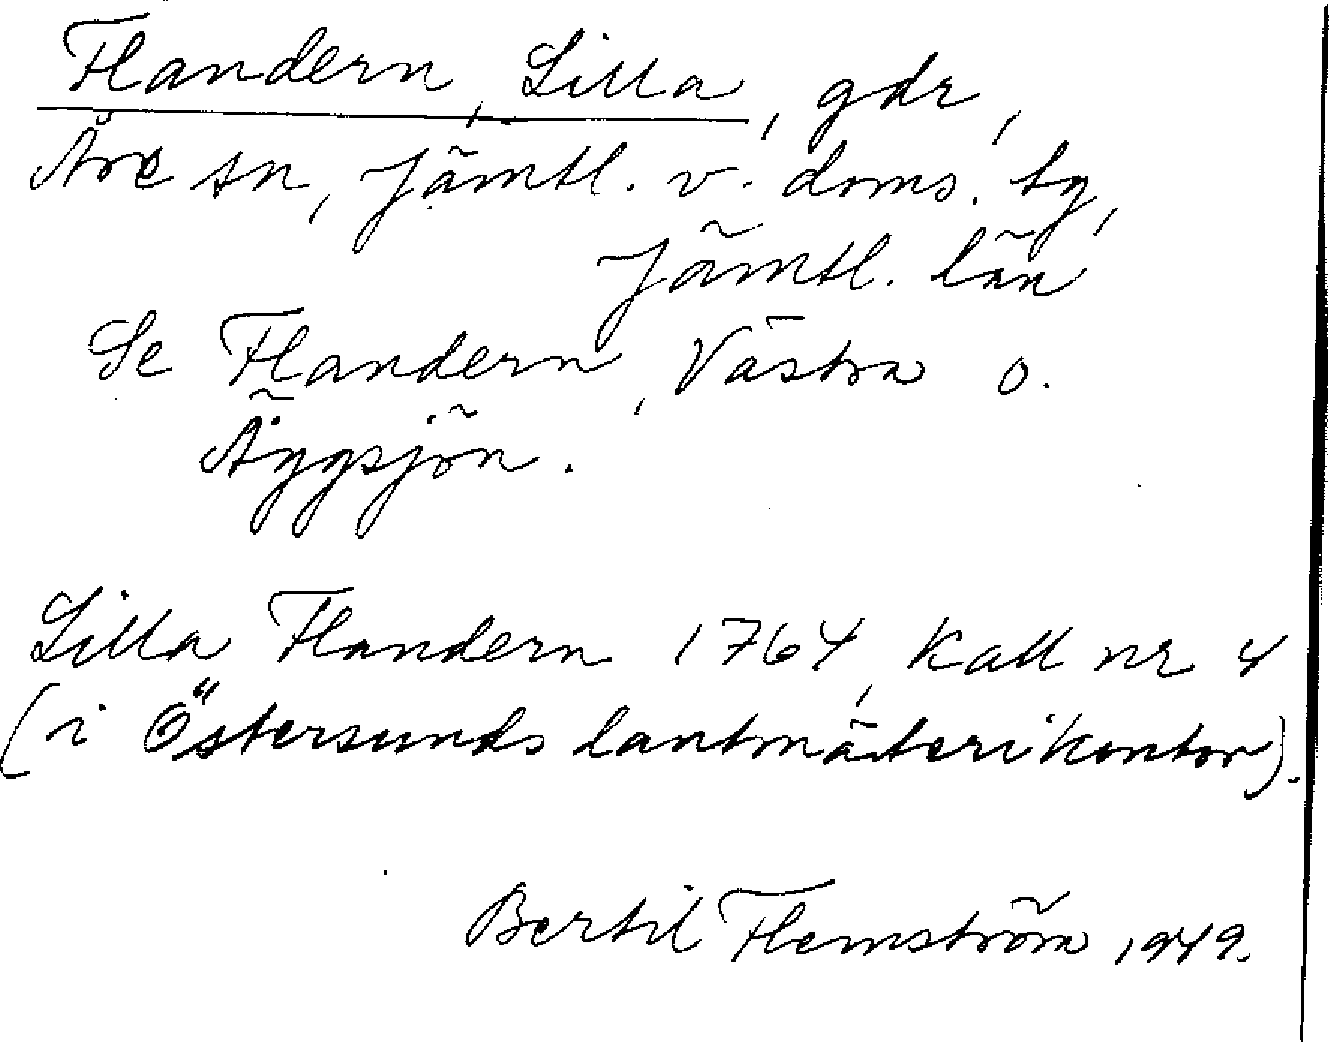 Flandern, Lilla, gdr,
Åre sn, Jämtl. v. doms. tg,
Jämtl. län
Se Flandern, Västra o.
Äggsjön.
Lilla Flandern 1764, Kall nr 4
(i Östersunds lantmäterikontor).
Bertil Flemström 1949.